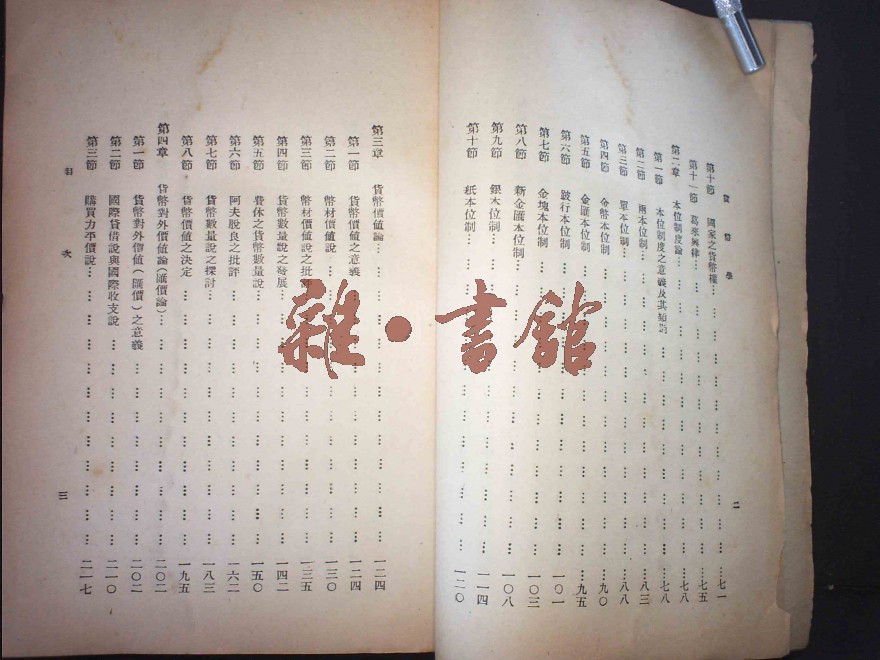 貨幣學
第十節 國家之貨幣權……七一
第十一節 葛來興律……七五
第二章 本位制度論……七八
第一節 本位制度之意義及其種類……七八
第二節 兩本位制……八三
第三節 單本位制……八八
第四節 金幣本位制……九〇
第五節 金匯本位制……九五
第六節 跛行本位制……一〇一
第七節 金塊本位制……一〇三
第八節 新金匯本位制……一〇八
第九節 銀本位制……一一四
第十節 紙本位制……一二〇
二
第三章 貨幣價値論……一二四
第一節 貨幣價値之意義……一二四
第二節 幣材價値說……一三〇
第三節 幣材價値說之批評……一三五
第四節 貨幣數量說之發展……一四二
第五節 費休之貨幣數量說……一五〇
第六節 阿夫脫良之批評……一六二
第七節 貨幣數量說之探討……一八三
第八節 貨幣價値之決定……一九五
第四章 貨幣對外價値論(匯價論)……二〇二
第一節 貨幣對外價値(匯價)之意義……二〇二
第二節 國際貸借說與國際收支說……二一〇
第三節 購買力平價說……二一七
目次
三
雜·書館